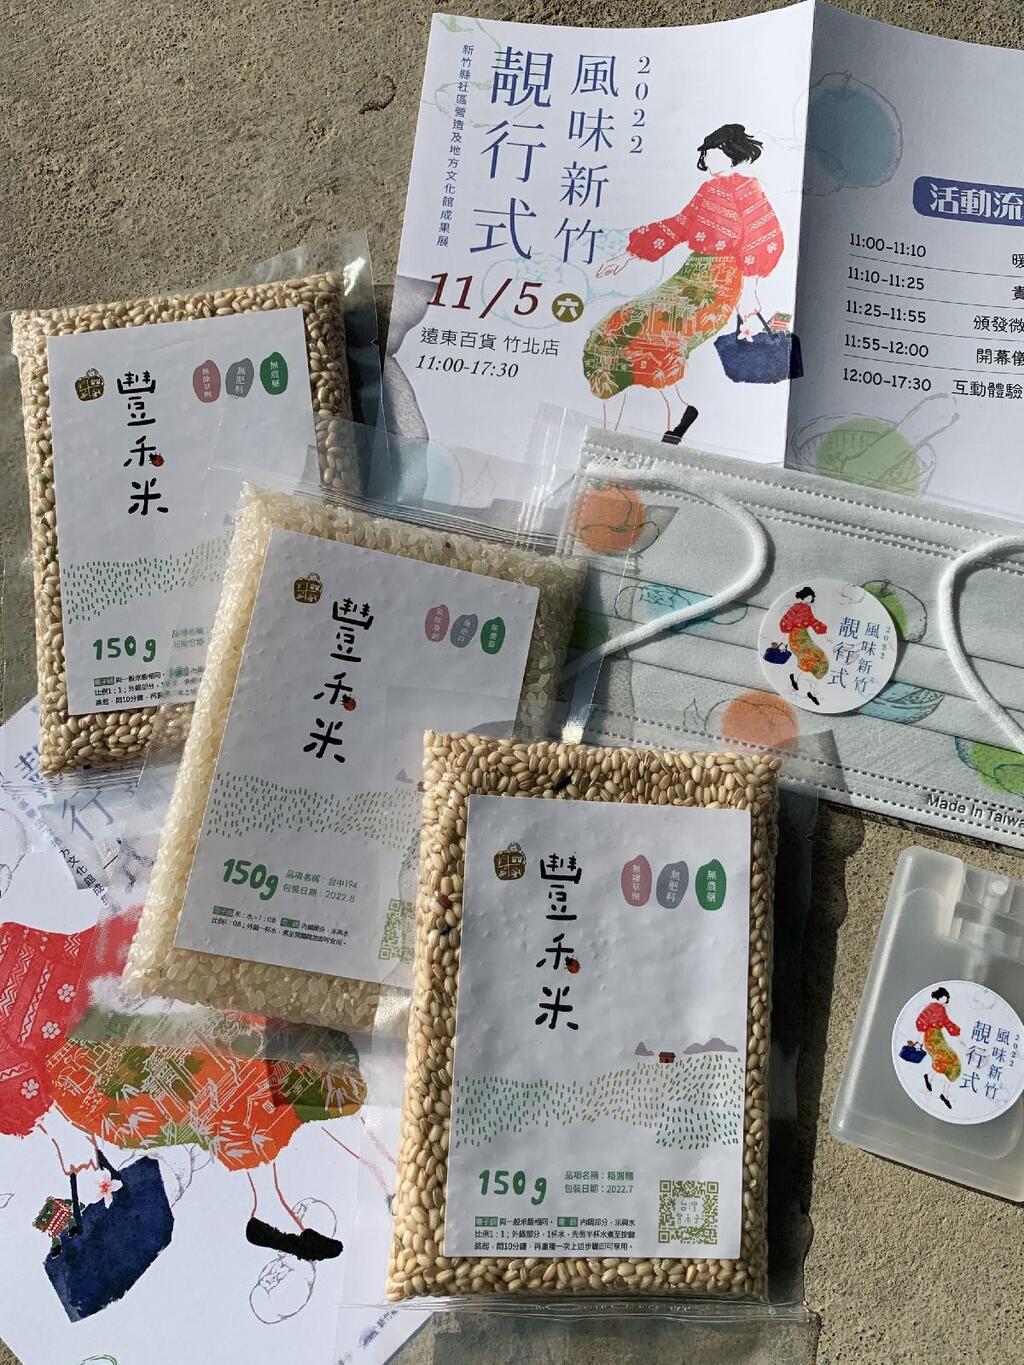 2022
風味新竹
靚行式
新竹縣社區營造及地方文化館成果展
11/5 六
遠東百貨 竹北店
11:00-17:30
活動流
11:00-11:10 暖
11:10-11:25 貴
11:25-11:55 頒發微
11:55-12:00 開幕儀
12:00-17:30 互動體驗
豐禾米
無除草劑
無肥料
無農藥
150g
電子鍋 與一般米飯相同。
比例1:1;外鍋部分,
跳起,悶10分鐘,再
豐禾米
無除草劑
無肥料
無農藥
150g
品項名稱:台中194
包裝日期:2022.8
豐禾米
無除草劑
無肥料
無農藥
150g
品項名稱:糙圓糯
包裝日期:2022.7
電子鍋 與一般米飯相同。 電鍋 內鍋部分,米與水
比例1:1;外鍋部分,1杯水,先倒半杯水煮至按鍵
跳起,悶10分鐘,再重複一次上述步驟即可享用。
2022
風味新竹
靚行式
Made In Taiwa
2022
風味新竹
靚行式